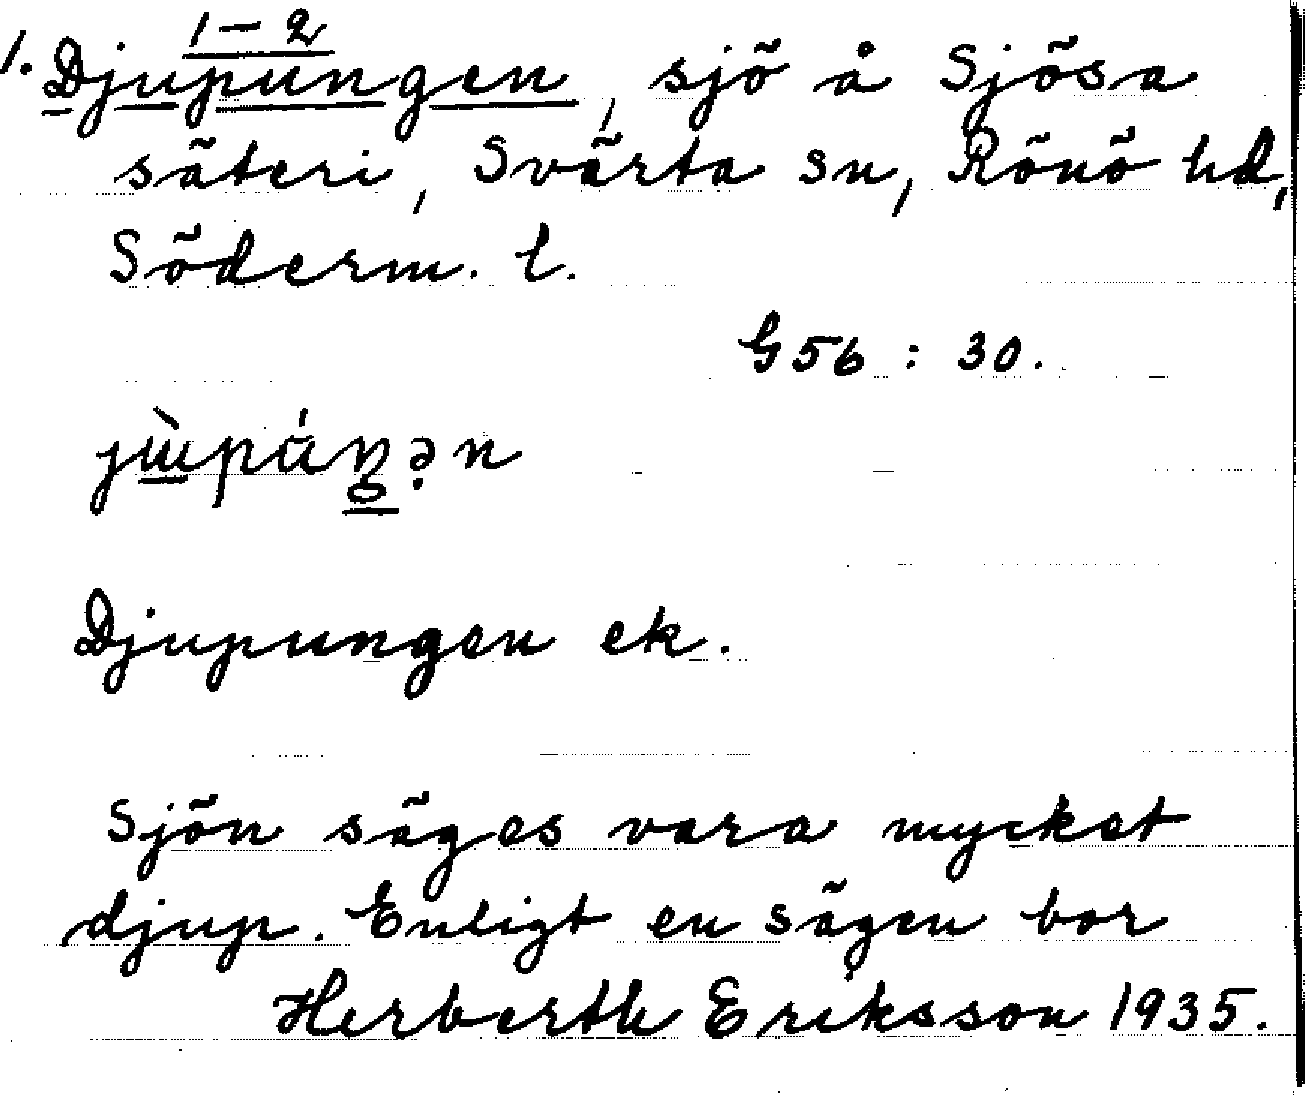 1-2
1. Djupungen, sjö å Sjösa
säteri, Svärta sn, Rönö hd,
Söderm. l.
G56 : 30.
Djupungen ek.
Sjön säges vara mycket
djup. Enligt en sägen bor
Herberth Eriksson 1935.